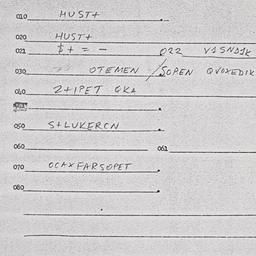 010 HUST+
020 HUST+
021 $ + = - 022 V1SND1K
030 OTEMEN / SOPEN QVOXEDIK
040 2+IPET OKA
050 S+LUKERCN
060 061
070 OCAXFARSOPET
080